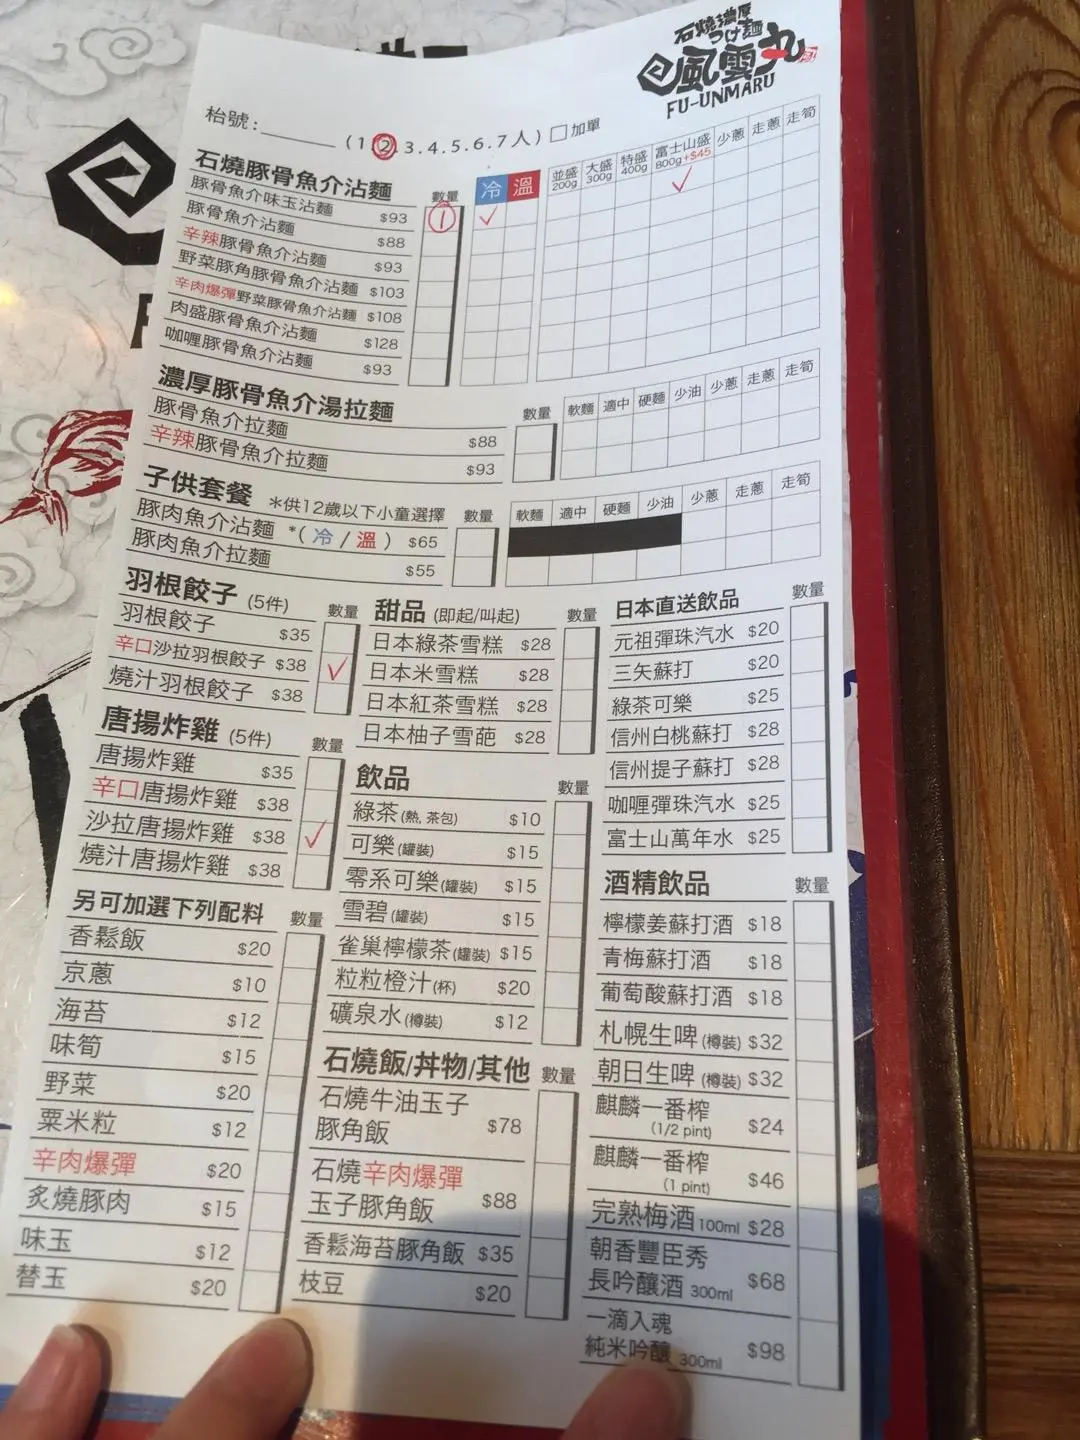 石燒濃厚
つけ麵
風雲丸
FU-UNMARU
枱號：______ (1.2.3.4.5.6.7人) □加單
石燒豚骨魚介沾麵 數量 冷 溫 並盛200g 大盛300g 特盛400g 富士山盛800g+$45 少蔥 走蔥 走筍
豚骨魚介味玉沾麵 $93 1 ✓ ✓
豚骨魚介沾麵 $88
辛辣豚骨魚介沾麵 $93
野菜豚角豚骨魚介沾麵 $103
辛肉爆彈野菜豚骨魚介沾麵 $108
肉盛豚骨魚介沾麵 $128
咖喱豚骨魚介沾麵 $93
濃厚豚骨魚介湯拉麵 數量 軟麵 適中 硬麵 少油 少蔥 走蔥 走筍
豚骨魚介拉麵 $88
辛辣豚骨魚介拉麵 $93
子供套餐 *供12歲以下小童選擇 數量 軟麵 適中 硬麵 少油 少蔥 走蔥 走筍
豚肉魚介沾麵 *(冷/溫) $65
豚肉魚介拉麵 $55
羽根餃子 (5件) 數量
羽根餃子 $35
辛口沙拉羽根餃子 $38 ✓
燒汁羽根餃子 $38
唐揚炸雞 (5件) 數量
唐揚炸雞 $35
辛口唐揚炸雞 $38
沙拉唐揚炸雞 $38 ✓
燒汁唐揚炸雞 $38
另可加選下列配料 數量
香鬆飯 $20
京蔥 $10
海苔 $12
味筍 $15
野菜 $20
粟米粒 $12
辛肉爆彈 $20
炙燒豚肉 $15
味玉 $12
替玉 $20
甜品 (即起/叫起) 數量
日本綠茶雪糕 $28
日本米雪糕 $28
日本紅茶雪糕 $28
日本柚子雪葩 $28
飲品 數量
綠茶(熱, 茶包) $10
可樂(罐裝) $15
零系可樂(罐裝) $15
雪碧(罐裝) $15
雀巢檸檬茶(罐裝) $15
粒粒橙汁(杯) $20
礦泉水(樽裝) $12
石燒飯/丼物/其他 數量
石燒牛油玉子
豚角飯 $78
石燒辛肉爆彈
玉子豚角飯 $88
香鬆海苔豚角飯 $35
枝豆 $20
日本直送飲品 數量
元祖彈珠汽水 $20
三矢蘇打 $20
綠茶可樂 $25
信州白桃蘇打 $28
信州提子蘇打 $28
咖喱彈珠汽水 $25
富士山萬年水 $25
酒精飲品 數量
檸檬姜蘇打酒 $18
青梅蘇打酒 $18
葡萄酸蘇打酒 $18
札幌生啤(樽裝) $32
朝日生啤(樽裝) $32
麒麟一番榨
(1/2 pint) $24
麒麟一番榨
(1 pint) $46
完熟梅酒100ml $28
朝香豐臣秀
長吟釀酒 300ml $68
一滴入魂
純米吟釀 300ml $98